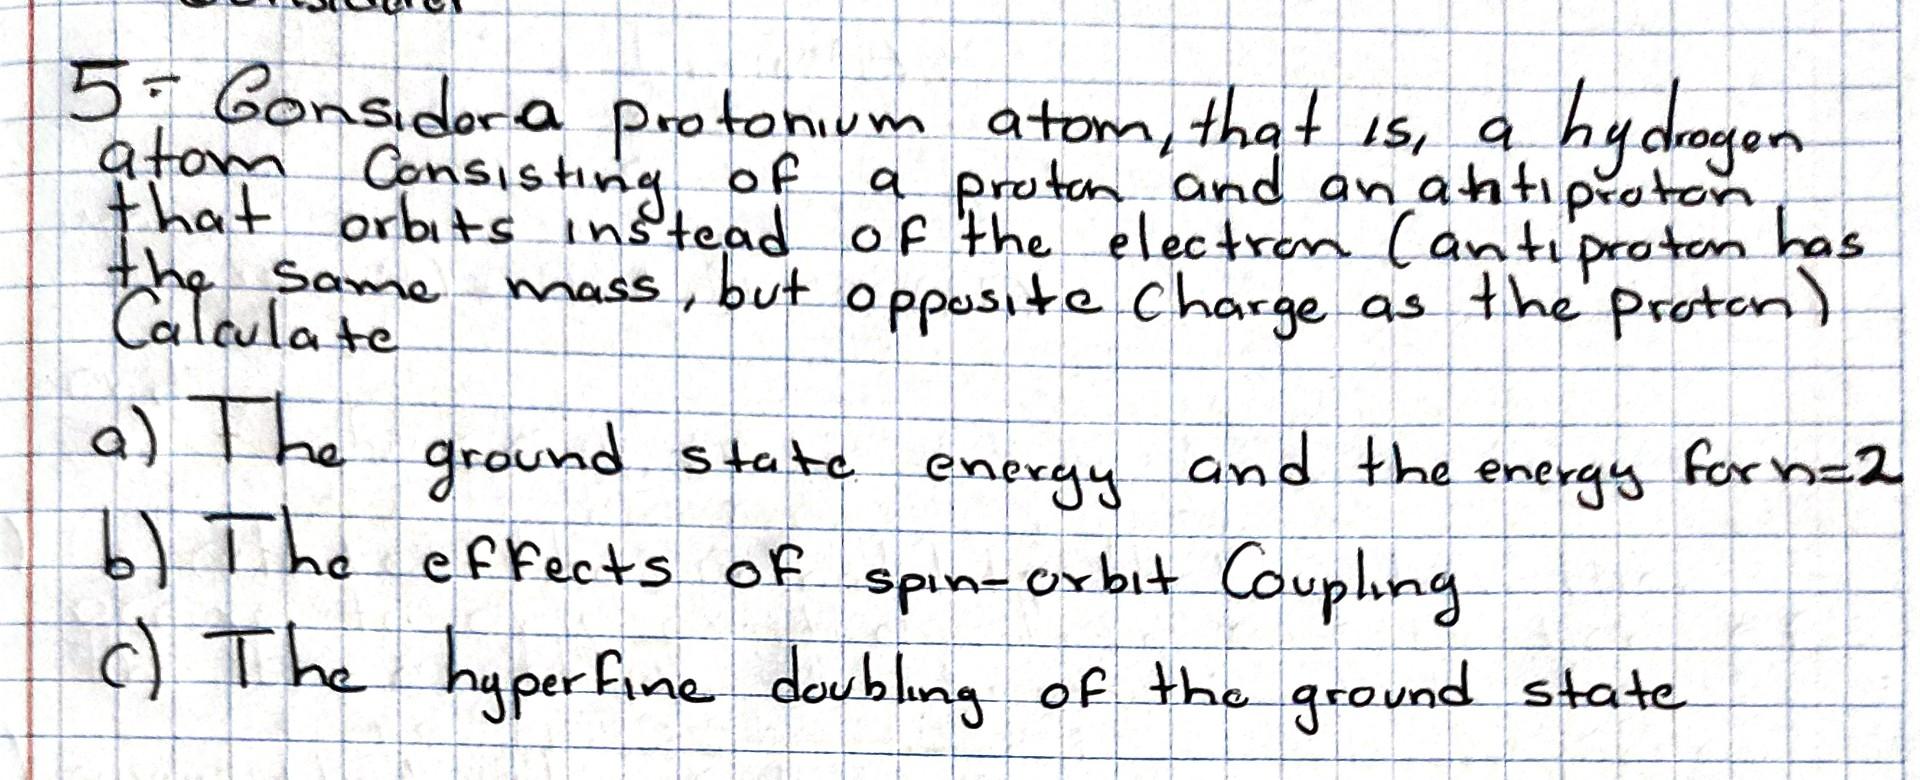 5- Consider a protonium atom, that is, a hydrogen
atom Consisting of a proton and an antiproton
that orbits instead of the electron (antiproton has
the same mass, but opposite charge as the proton)
Calculate
a) The ground state energy and the energy for n=2
b) The effects of spin-orbit Coupling
c) The hyperfine doubling of the ground state